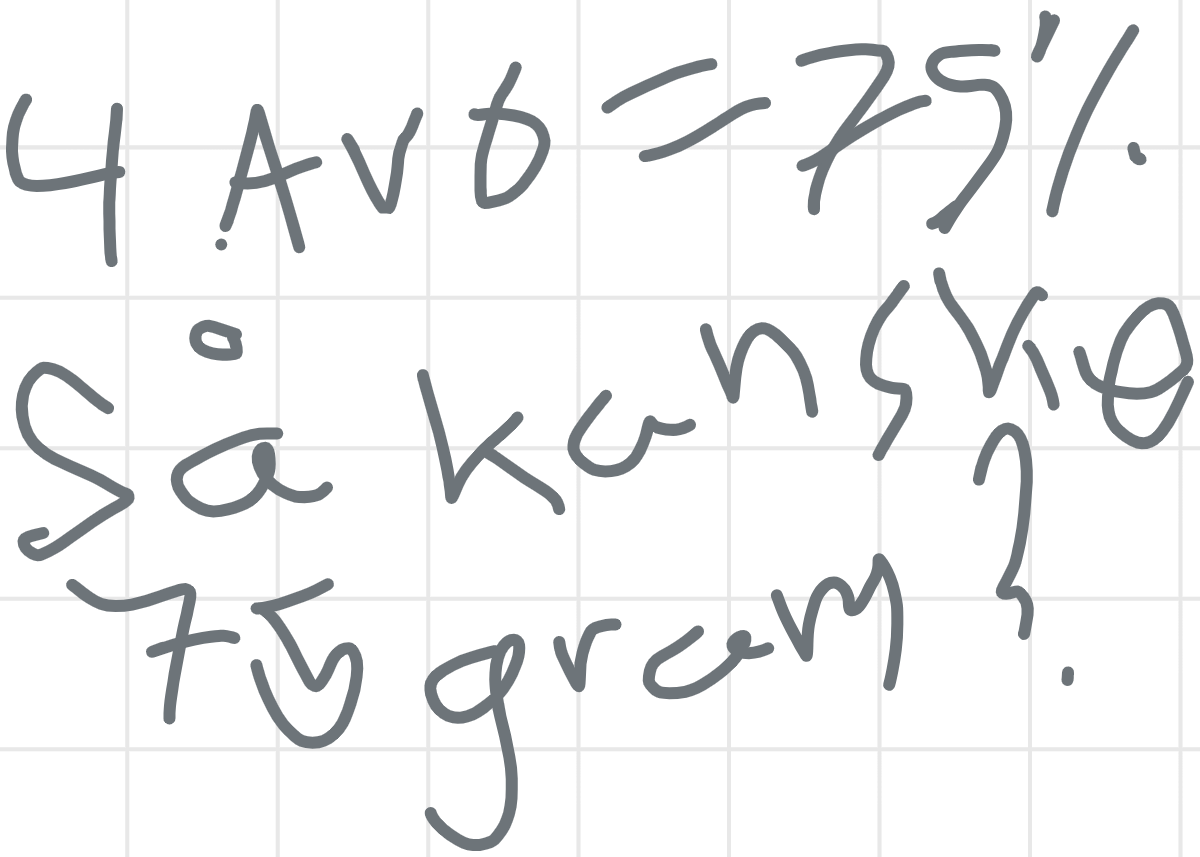 4 AV 6 = 75%
Så kanske
75 gram?